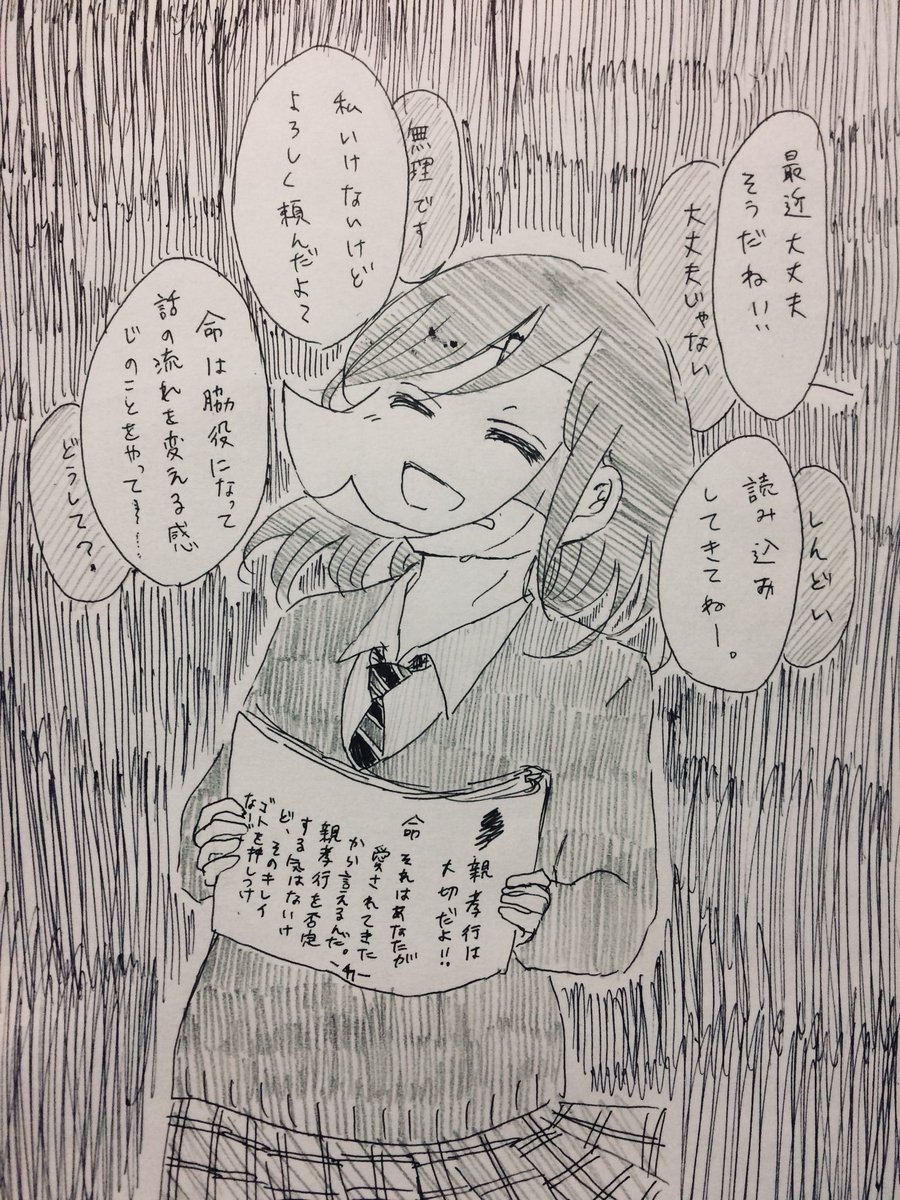 最近大丈夫
そうだねい!!
大丈夫じゃない
しんどい
読み込み
してきてねー。
無理です
私いけないけど
よろしく頼んだよ〜
命は脇役になって
話の流れを変える感
じのことをやって
どうして?
親孝行は
大切だよ!!
命 それはあなたが
愛されてきた
から言えるんだ。
親孝行を否定
する気はないけ
ど、そのキレイ
ゴトを押しつけ